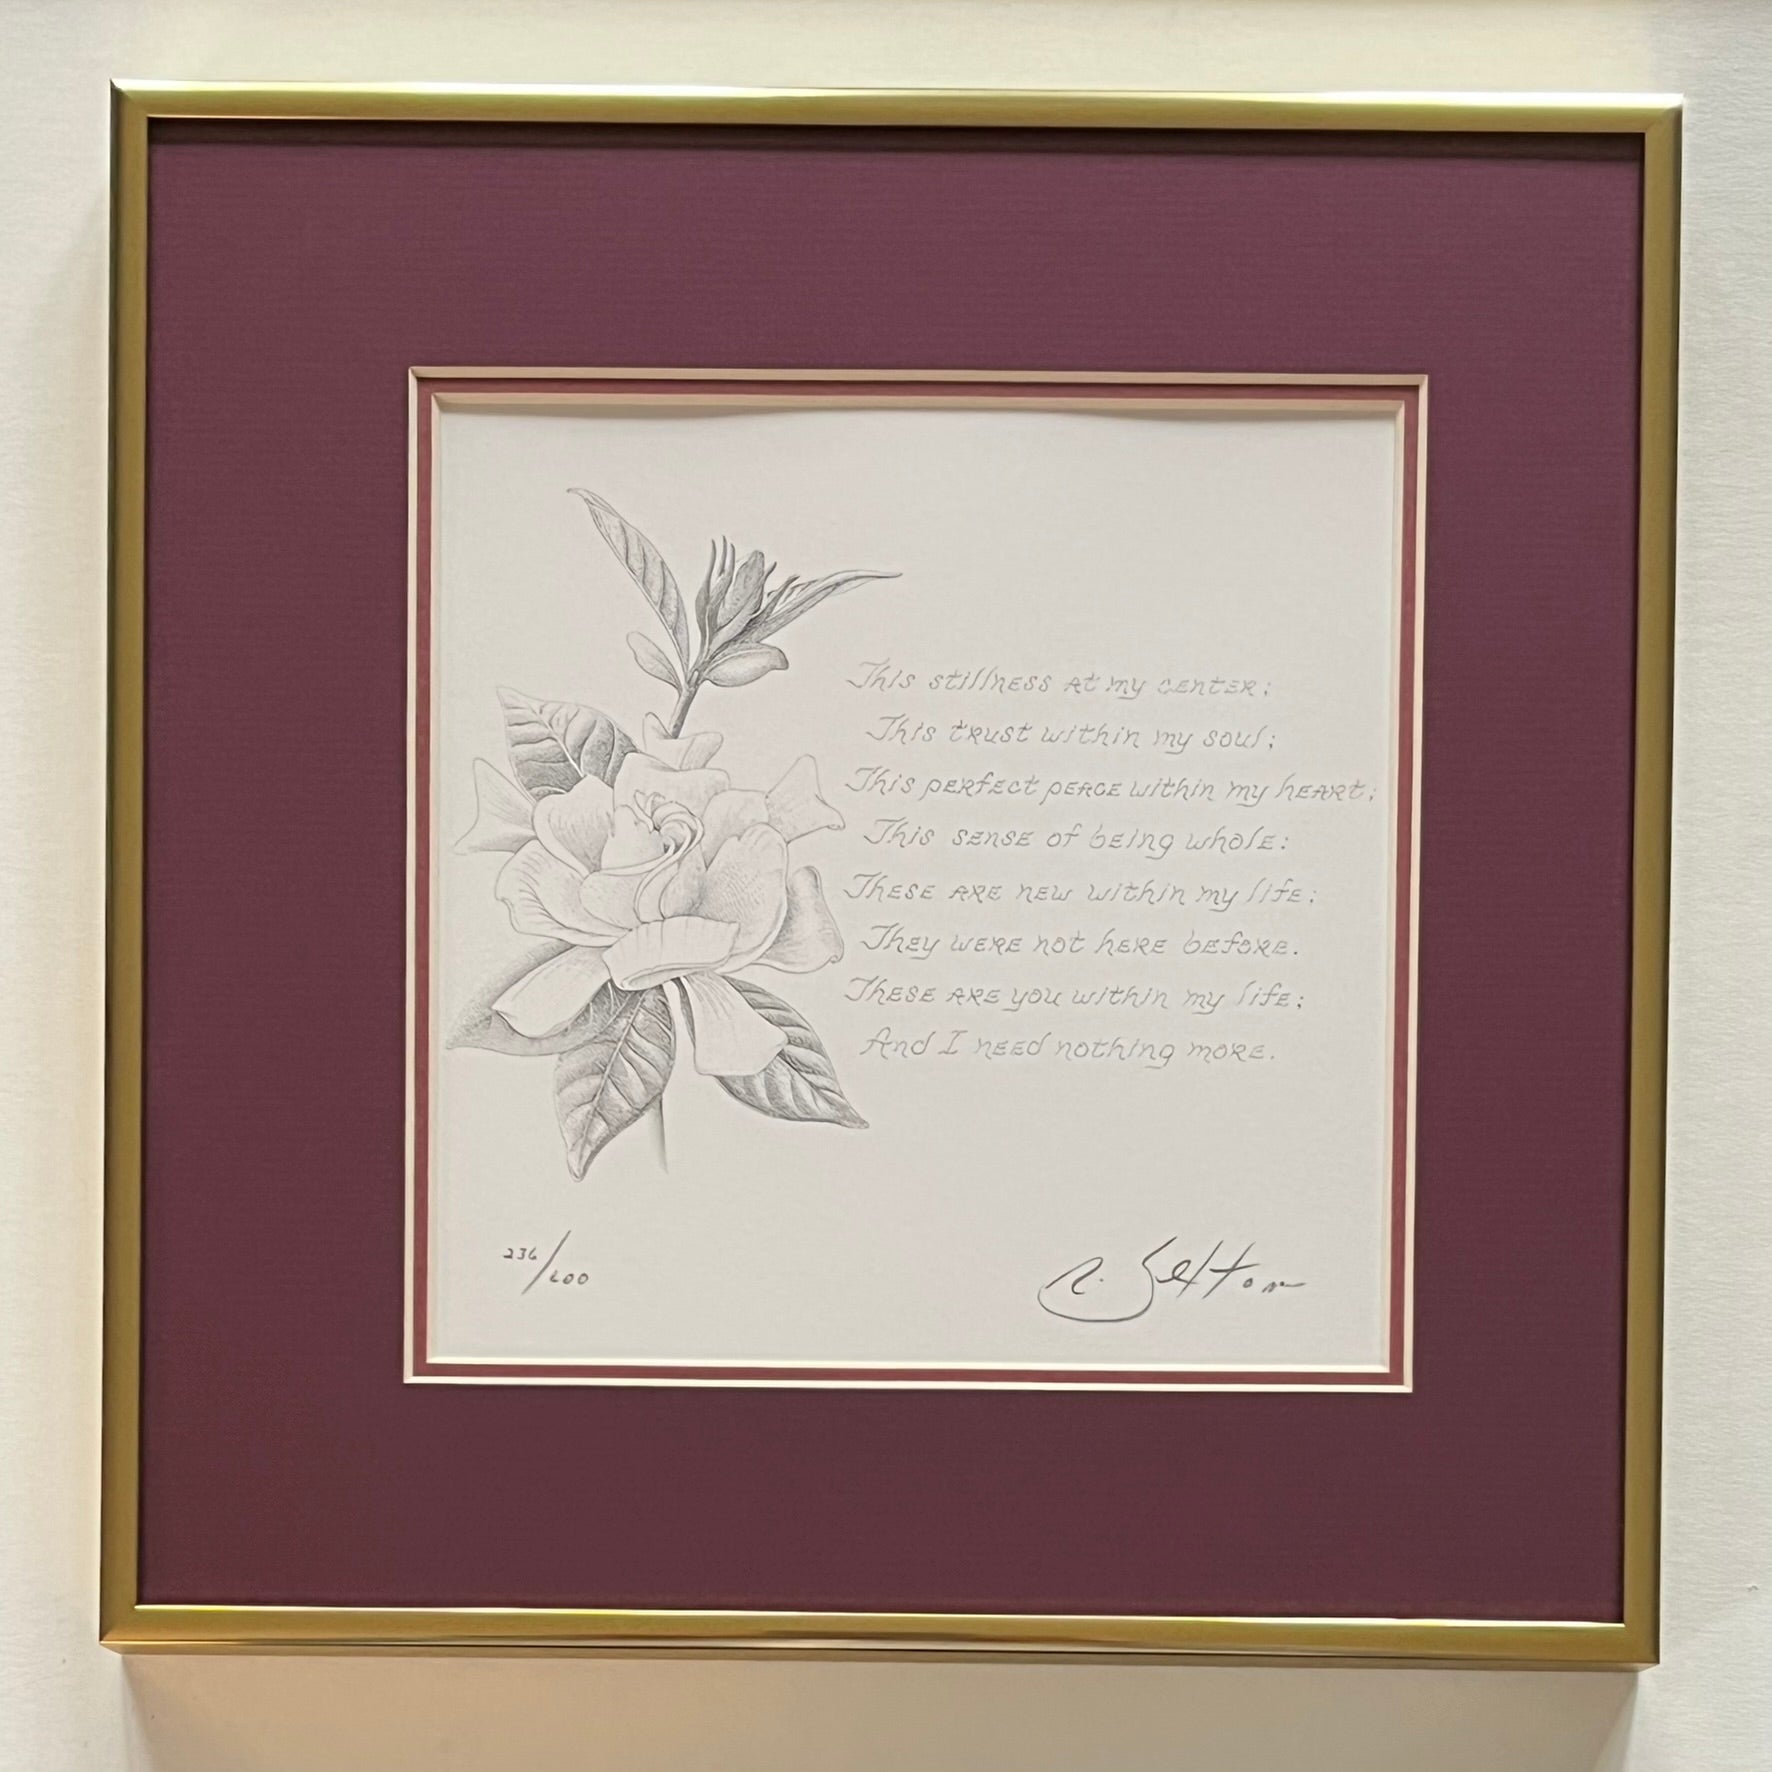 This stillness at my center;
This trust within my soul;
This perfect peace within my heart;
This sense of being whole:
These are new within my life;
They were not here before.
These are you within my life;
And I need nothing more.
236/600